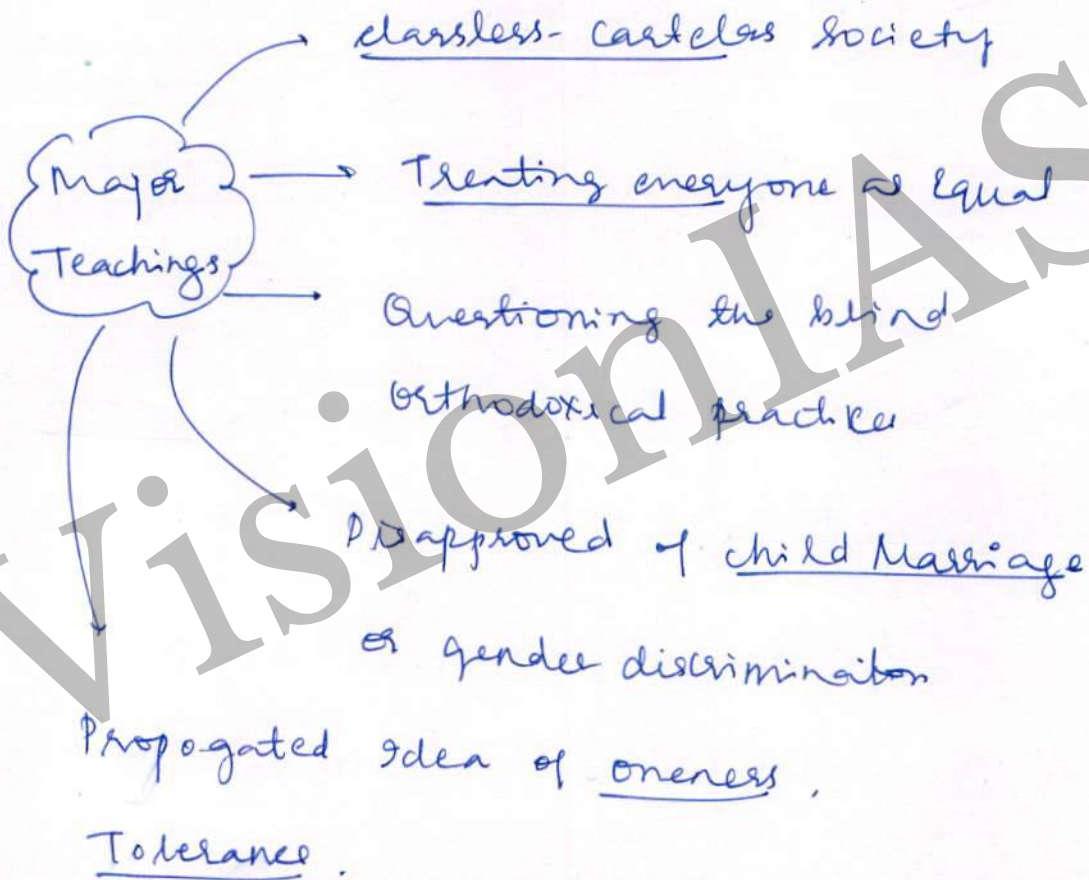 classless- casteless society
Major
Teachings
Treating everyone as Equal
Questioning the blind
orthodoxical practices
Disapproved of child Marriage
or gender discriminaiton
Propogated idea of oneness,
Tolerance.
VisionIAS